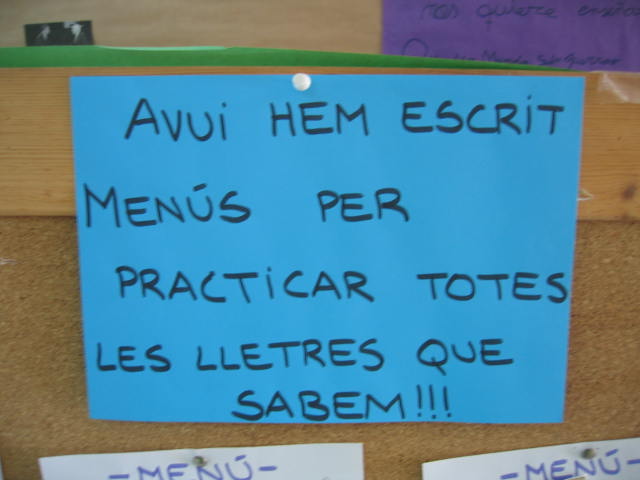 nos quiere
AVUI HEM ESCRIT
MENÚS PER
PRACTICAR TOTES
LES LLETRES QUE
SABEM!!!
-MENÚ-
-MENÚ-